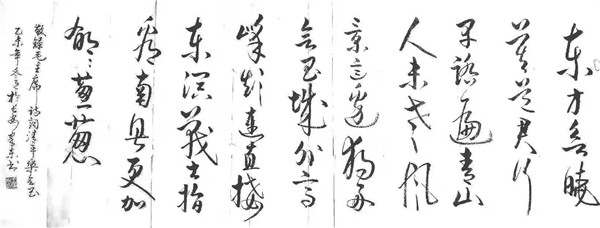 东方欲晓
莫道君行
早踏遍青山
人未老风
景这边独好
会昌城外高
峰颠连直接
东溟战士指
看南粤更加
郁々葱葱
敬录毛主席 诗词清平乐会昌
乙未年冬 於长安 东书